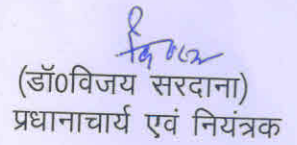 (डॉ0विजय सरदाना)
प्रधानाचार्य एवं नियंत्रक